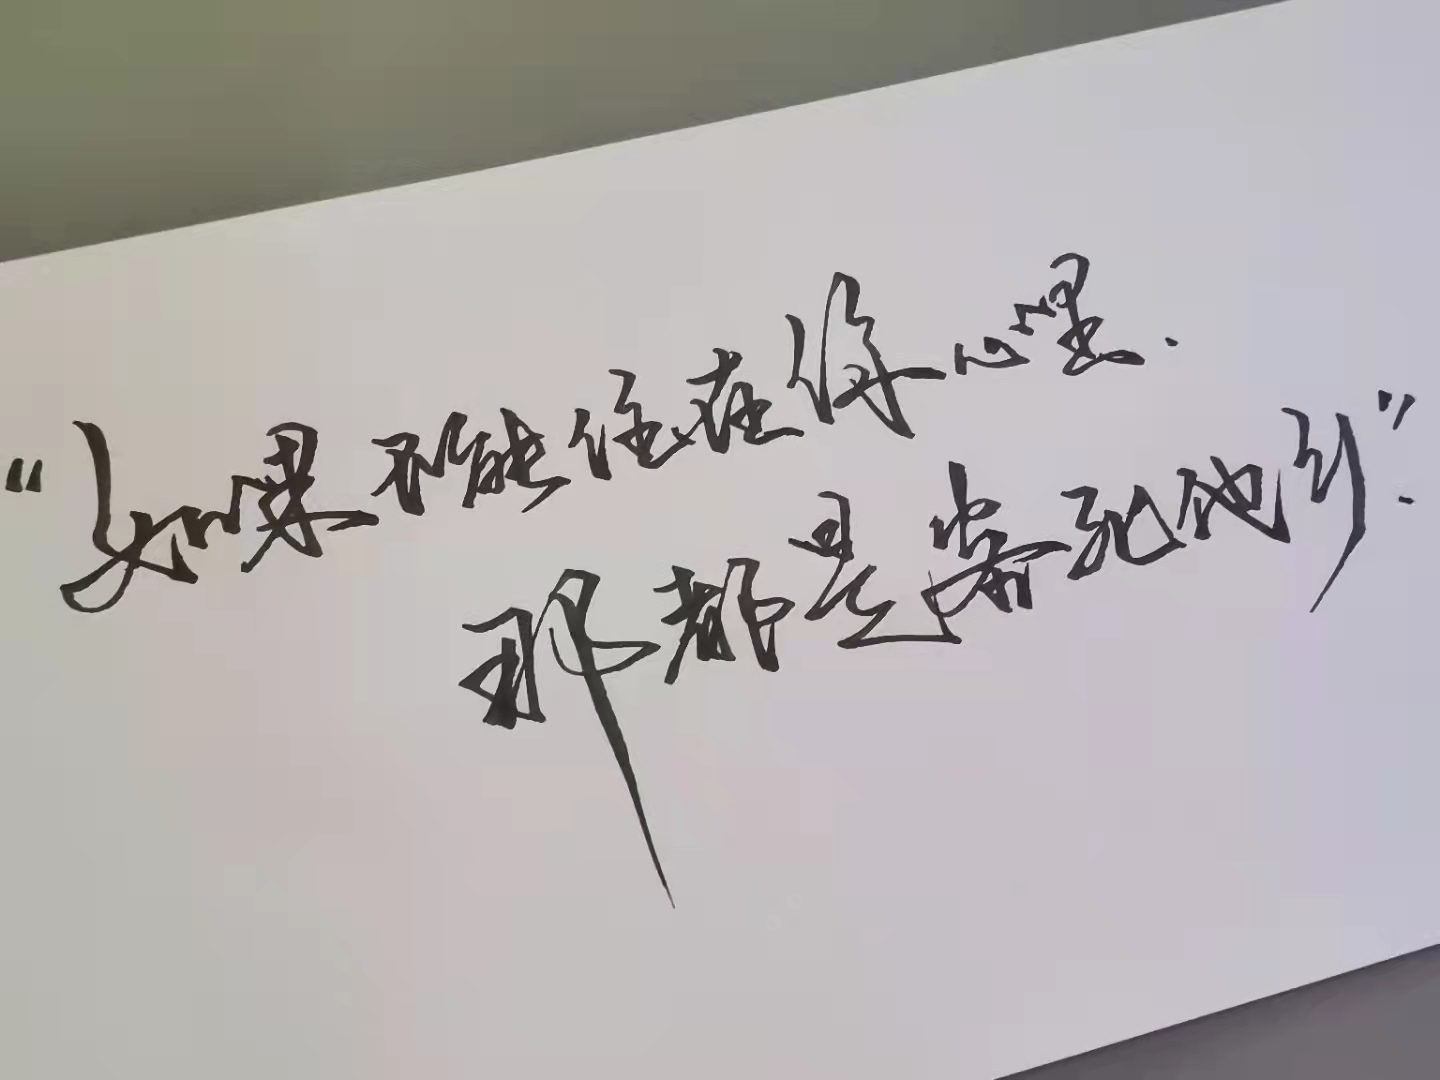 “如果不能住在你心里.
那都是客死他乡.”